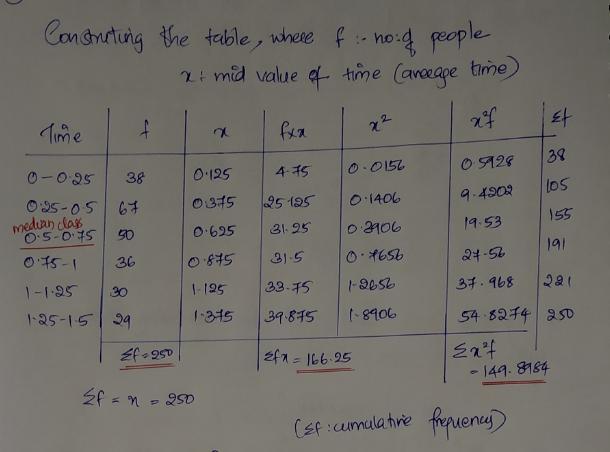 Constructing the table, where f :- no: of people
x : mid value of time (average time)
Time f x fxx x² x²f Σf
0-0.25 38 0.125 4.75 0.0156 0.5928 38
0.25-0.5 67 0.375 25.125 0.1406 9.4202 105
median class
0.5-0.75 50 0.625 31.25 0.3906 19.53 155
0.75-1 36 0.875 31.5 0.7656 27.56 191
1-1.25 30 1.125 33.75 1.2656 37.968 221
1.25-1.5 29 1.375 39.875 1.8906 54.8274 250
Σf=250 Σfx = 166.25 Σx²f
= 149.8984
Σf = n = 250
(Σf : cumulative frequency)